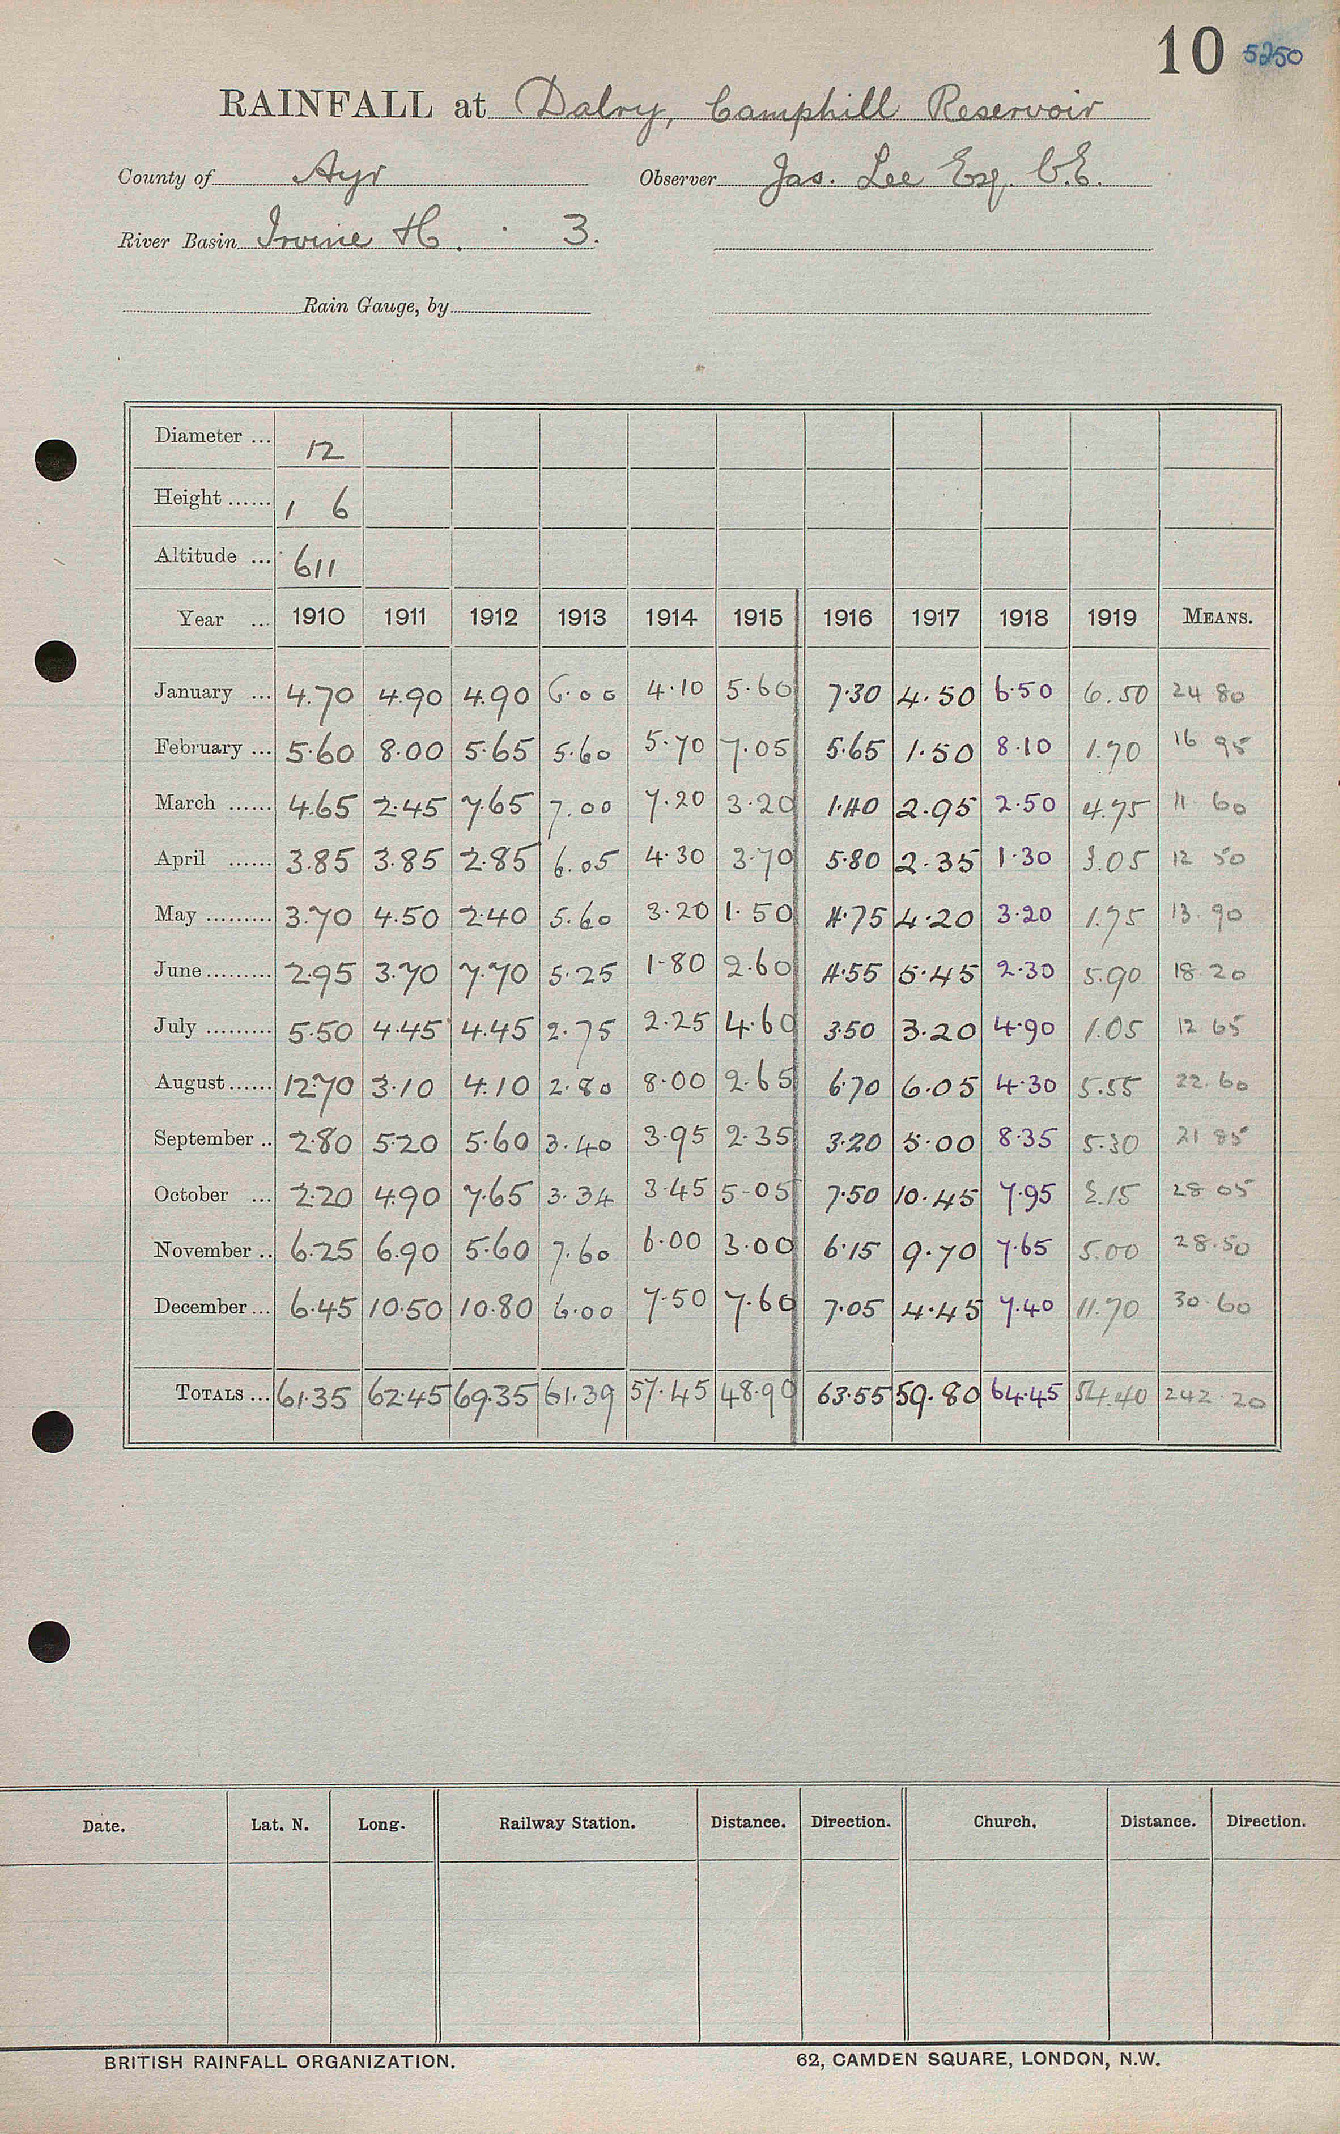 10 5250
RAINFALL at Dalry, Camphill Reservoir
County of Ayr Observer Jas. Lee Esq. C.E.
River Basin Irvine H. 3.
Rain Gauge, by
Diameter ... 12
Height ...... 1 6
Altitude ... 611
Year ... 1910 1911 1912 1913 1914 1915 1916 1917 1918 1919 MEANS.
January ... 4.70 4.90 4.90 6.00 4.10 5.60 7.30 4.50 6.50 6.50 24 80
February ... 5.60 8.00 5.65 5.60 5.70 7.05 5.65 1.50 8.10 1.70 16 95
March ...... 4.65 2.45 7.65 7.00 7.20 3.20 1.40 2.95 2.50 4.75 11 60
April ...... 3.85 3.85 2.85 6.05 4.30 3.70 5.80 2.35 1.30 3.05 12 50
May ......... 3.70 4.50 2.40 5.60 3.20 1.50 4.75 4.20 3.20 1.75 13.90
June ......... 2.95 3.70 7.70 5.25 1.80 2.60 4.55 5.45 2.30 5.90 18 20
July ......... 5.50 4.45 4.45 2.75 2.25 4.60 3.50 3.20 4.90 1.05 12 65
August ...... 12.70 3.10 4.10 2.80 8.00 2.65 6.70 6.05 4.30 5.55 22.60
September .. 2.80 5.20 5.60 3.40 3.95 2.35 3.20 5.00 8.35 5.30 21 85
October ... 2.20 4.90 7.65 3.34 3.45 5.05 7.50 10.45 7.95 2.15 28 05
November .. 6.25 6.90 5.60 7.60 6.00 3.00 6.15 9.70 7.65 5.00 28.50
December ... 6.45 10.50 10.80 6.00 7.50 7.60 7.05 4.45 7.40 11.70 30.60
TOTALS ... 61.35 62.45 69.35 61.39 57.45 48.90 63.55 59.80 64.45 54.40 242 20
Date. Lat. N. Long. Railway Station. Distance. Direction. Church. Distance. Direction.
BRITISH RAINFALL ORGANIZATION. 62, CAMDEN SQUARE, LONDON, N.W.